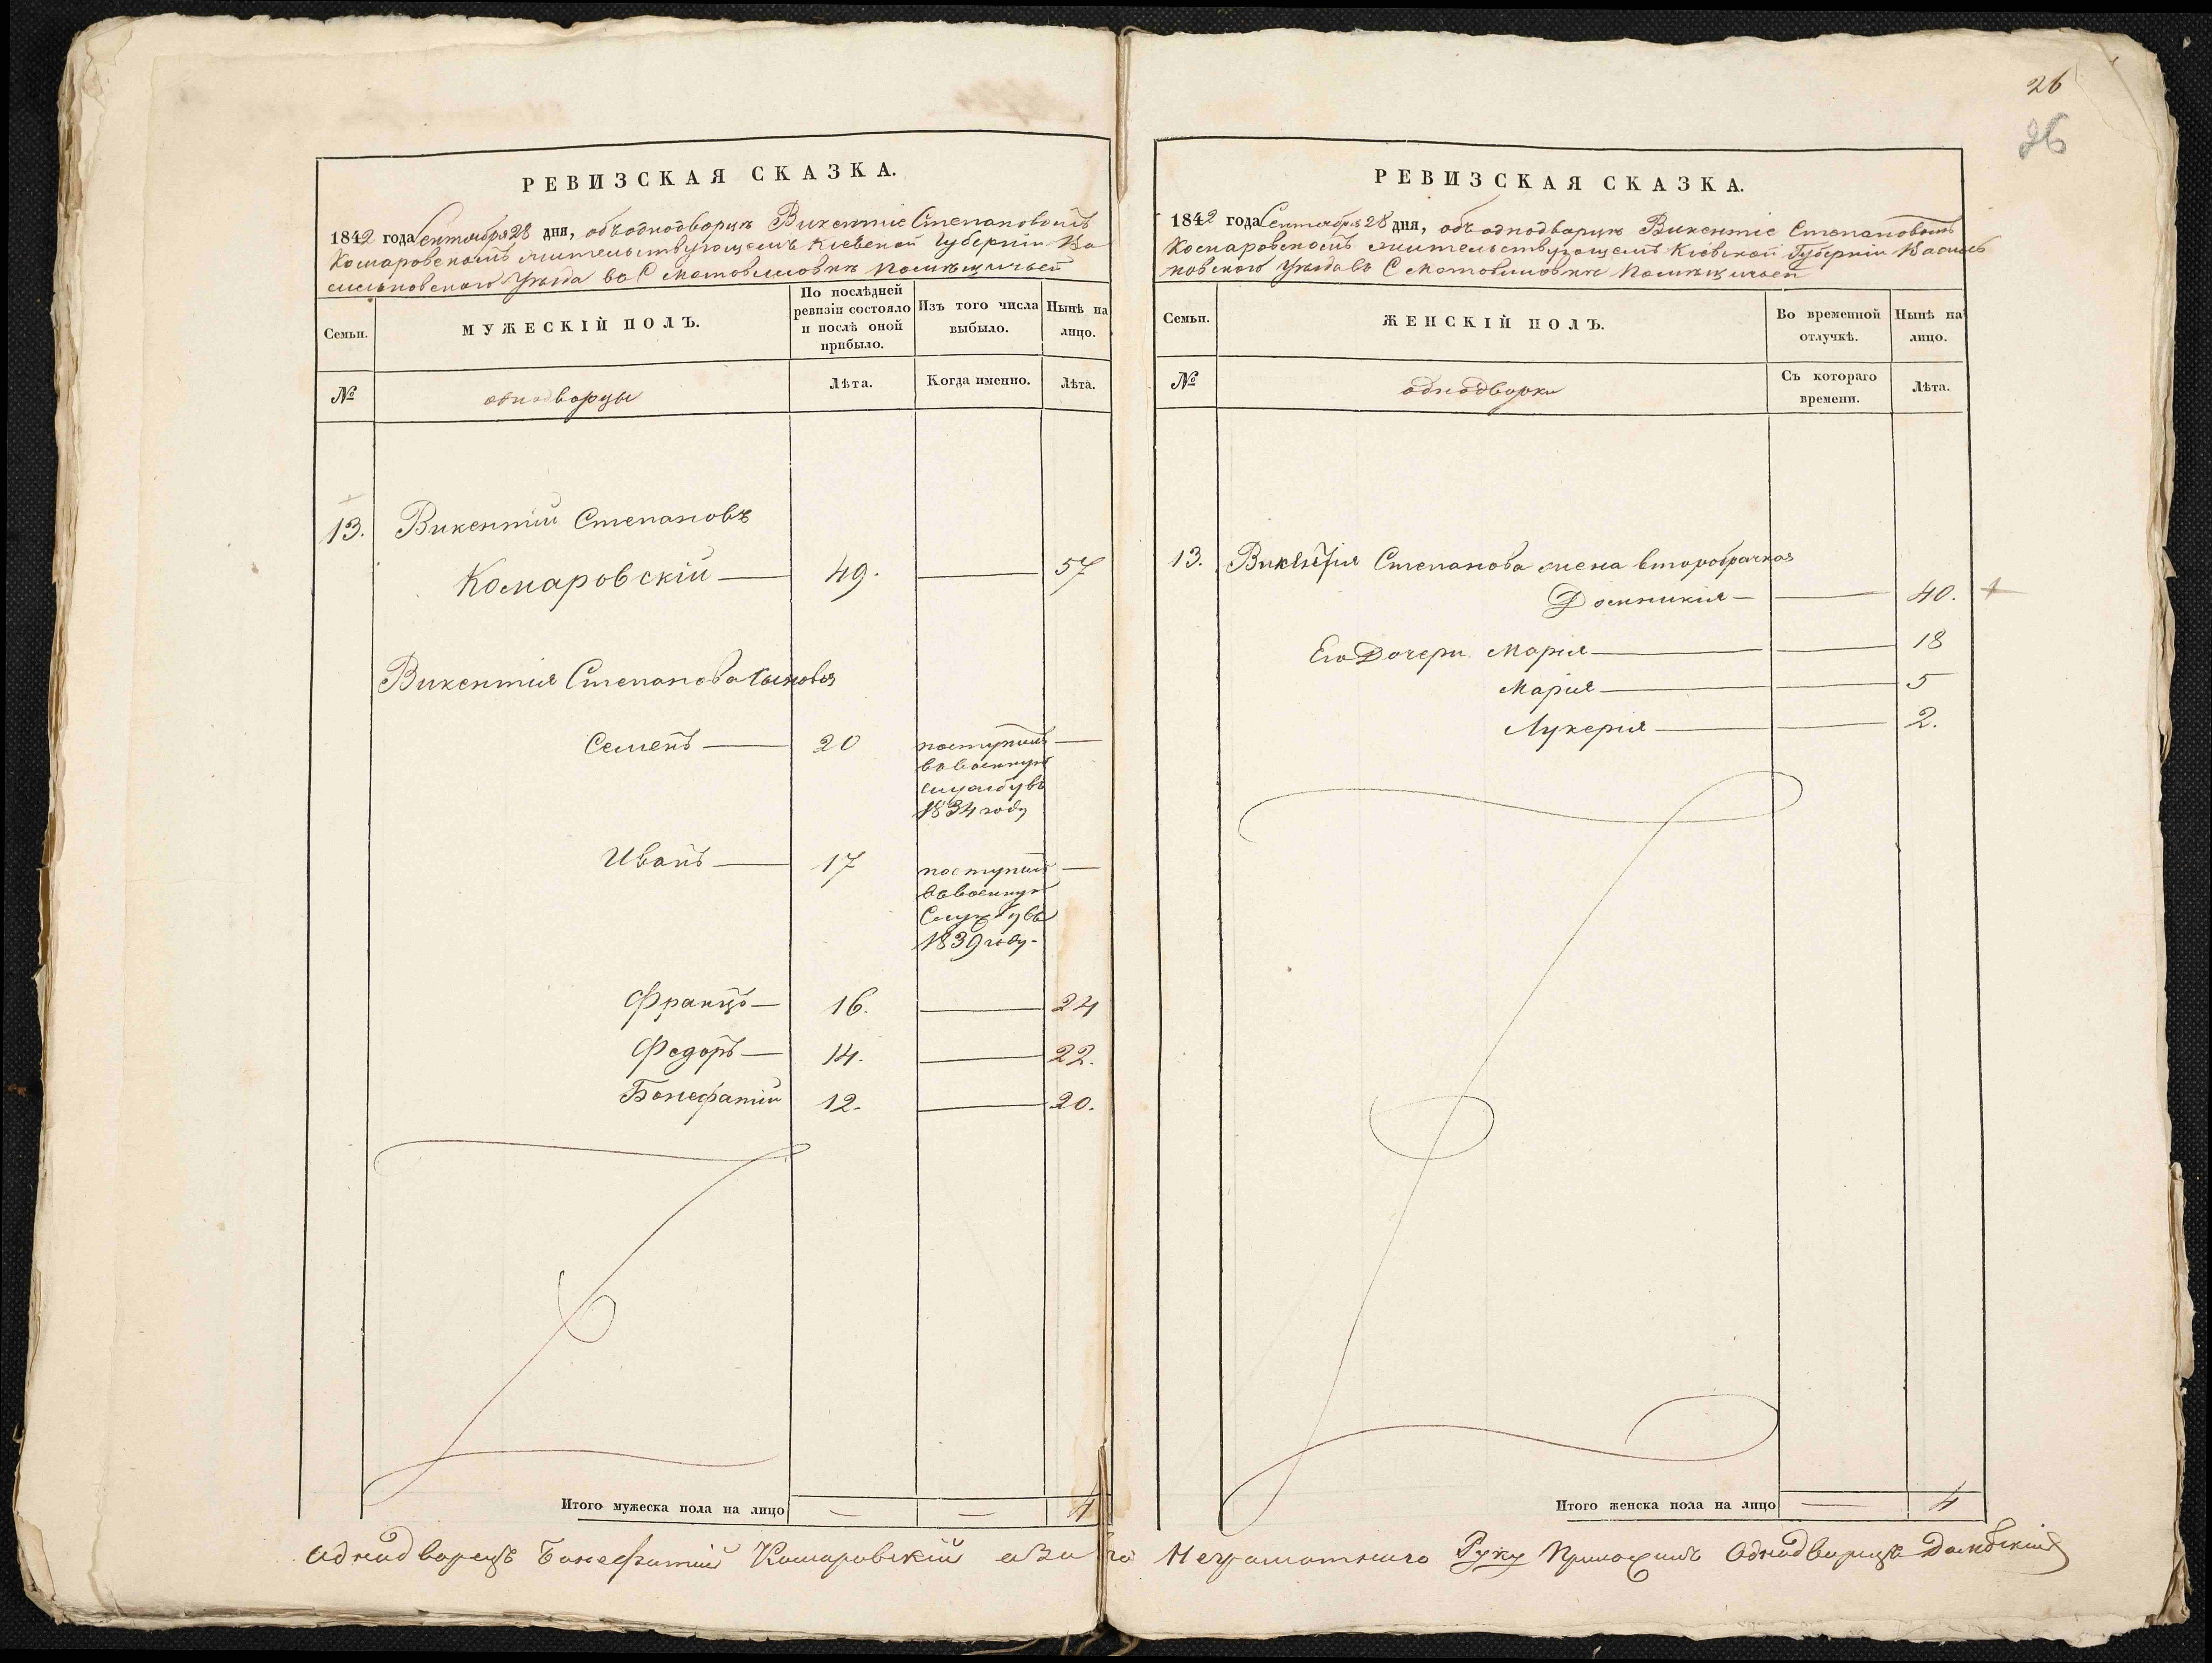 26
26
РЕВИЗСКАЯ СКАЗКА.
1842 года Сентября 28 дня, объ однодворцѣ Викентіе Степановомъ
Комаровскомъ жительствующемъ Кіевской Губерніи Ва
сильковского Уѣзда въ С Мотовиловкѣ Помѣщичьей
Семьи.
МУЖЕСКІЙ ПОЛЪ.
По послѣдней ревизіи состояло и послѣ оной прибыло.
Изъ того числа выбыло.
Нынѣ на лицо.
№
однодворцы
Лѣта.
Когда именно.
Лѣта.
13. Викентій Степановъ
Комаровскій — 49. — 57
Викентія Степанова сыновья
Семенъ — 20 поступилъ —
въ военную
службу въ
1834 году
Иванъ — 17 поступилъ —
въ военную
Службу въ
1839 году -
Францъ — 16. — 24
Федоръ — 14. — 22.
Бонефатій 12. — 20.
Итого мужеска пола на лицо — — 4
РЕВИЗСКАЯ СКАЗКА.
1842 года Сентября 28 дня, объ однодворцѣ Викентіе Степановомъ
Комаровскомъ жительствующемъ Кіевской Губерніи Василь
ковского Уѣзда въ С Мотовиловкѣ Помѣщичьей
Семьи.
ЖЕНСКІЙ ПОЛЪ.
Во временной отлучкѣ.
Нынѣ на лицо.
№
однодворки
Съ котораго времени.
Лѣта.
13. Викентія Степанова жена второбрачная
Домникія — — 40. +
Его Дочери Марія — — 18
Марія — — 5
Лукерія — — 2.
Итого женска пола на лицо — 4
Однодворецъ Бонефатій Комаровскій а за его Неграмотного Руку Приложилъ Однодворецъ Домбскій